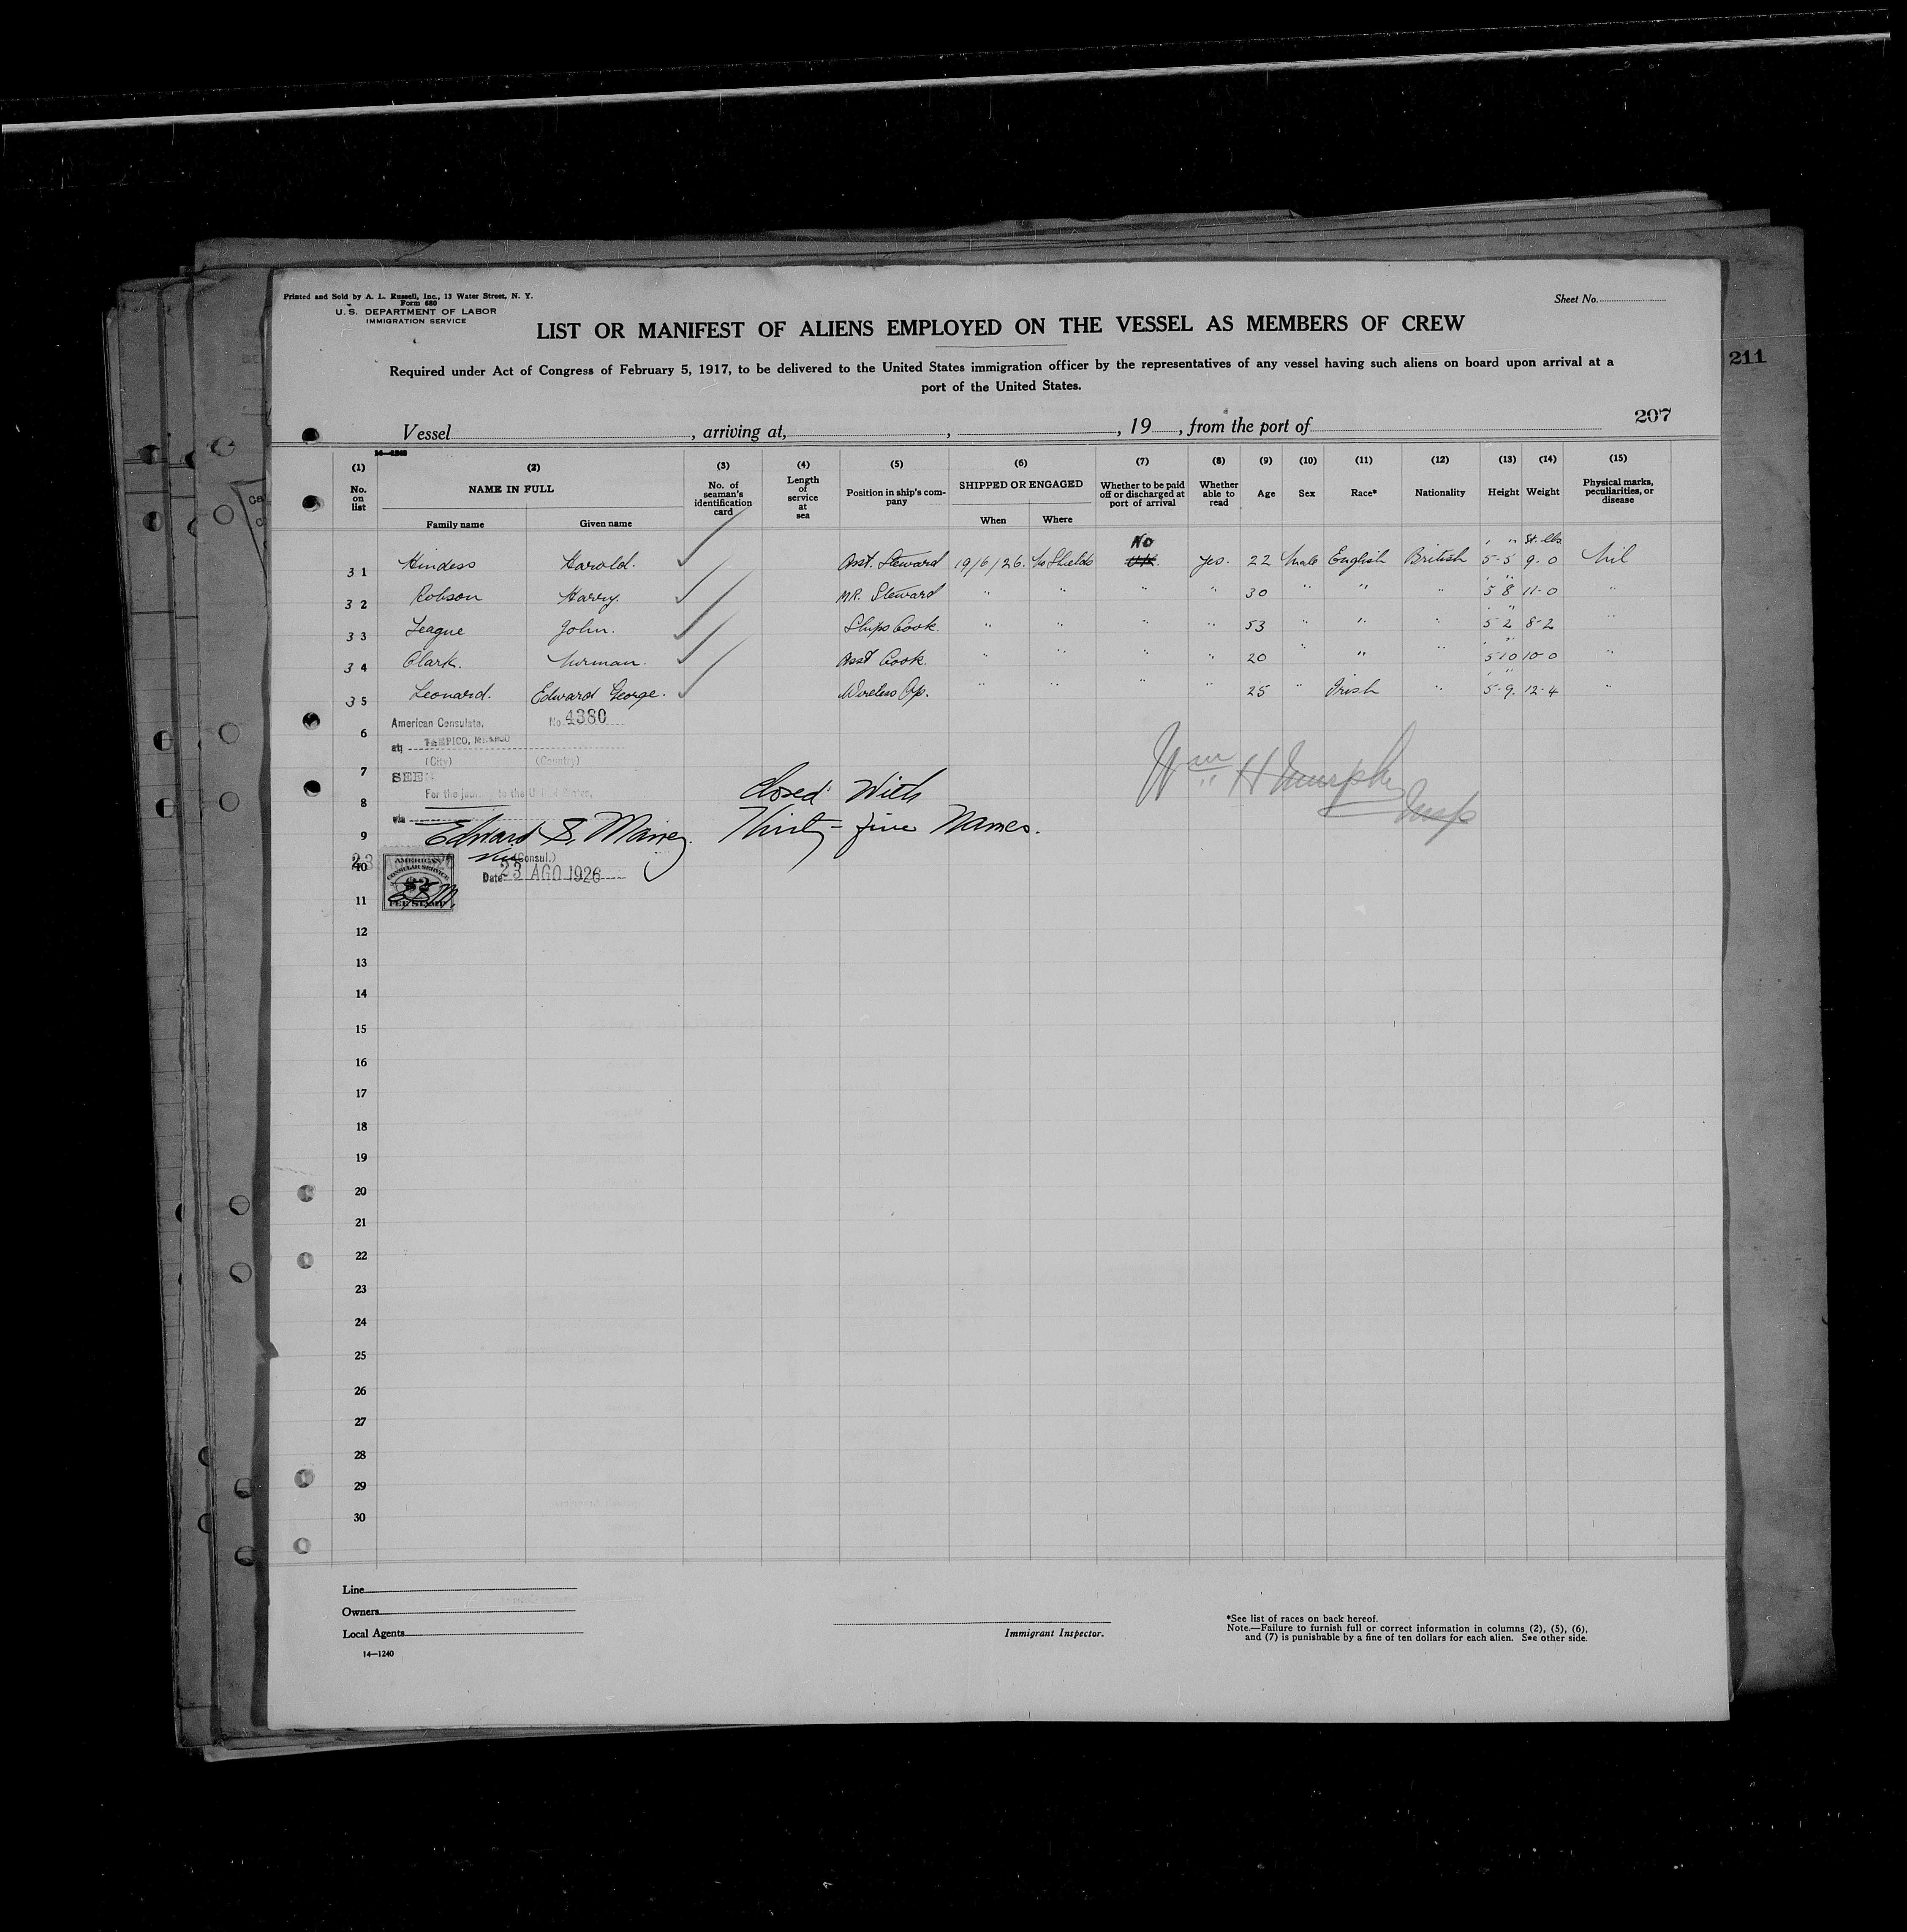 Printed and Sold by A. L. Russell, Inc., 13 Water Street, N. Y.
Form 680
U. S. DEPARTMENT OF LABOR
IMMIGRATION SERVICE
Sheet No.
LIST OR MANIFEST OF ALIENS EMPLOYED ON THE VESSEL AS MEMBERS OF CREW
Required under Act of Congress of February 5, 1917, to be delivered to the United States immigration officer by the representatives of any vessel having such aliens on board upon arrival at a
port of the United States.
211
207
Vessel , arriving at, , , 19 , from the port of
14—1240
(1) No. on list
(2) NAME IN FULL Family name Given name
(3) No. of seaman's identification card
(4) Length of service at sea
(5) Position in ship's company
(6) SHIPPED OR ENGAGED When Where
(7) Whether to be paid off or discharged at port of arrival
(8) Whether able to read
(9) Age
(10) Sex
(11) Race*
(12) Nationality
(13) Height
(14) Weight
(15) Physical marks, peculiarities, or disease
No ' " St. lbs
31 Hindess Harold. Asst. Steward 19/6/26. No Shields yes. 22 Male English British 5-5 9-0 Nil
32 Robson Harry. MR. Steward " " " " 30 " " " 5 8 11-0 "
33 League John. Ships Cook. " " " " 53 " " " 5-2 8-2 "
34 Clark. Norman. Asst Cook. " " " " 20 " " " 5-10 10-0 "
35 Leonard. Edward George. Wireless Op. " " " " 25 " Irish " 5-9. 12-4 "
American Consulate, No. 4380
at TAMPICO, MEXICO
(City) (Country)
SEEN
For the journey to the United States,
via
Edward S. Maney.
Vice (Consul.)
Date 23 AGO 1926
AMERICAN
CONSULAR SERVICE
$2
FEE STAMP
ESM
Closed With
Thirty-five Names.
Wm H Murphy
Insp
6
7
8
9
10
11
12
13
14
15
16
17
18
19
20
21
22
23
24
25
26
27
28
29
30
Line
Owners
Local Agents
14—1240
Immigrant Inspector.
*See list of races on back hereof.
Note.—Failure to furnish full or correct information in columns (2), (5), (6),
and (7) is punishable by a fine of ten dollars for each alien. See other side.